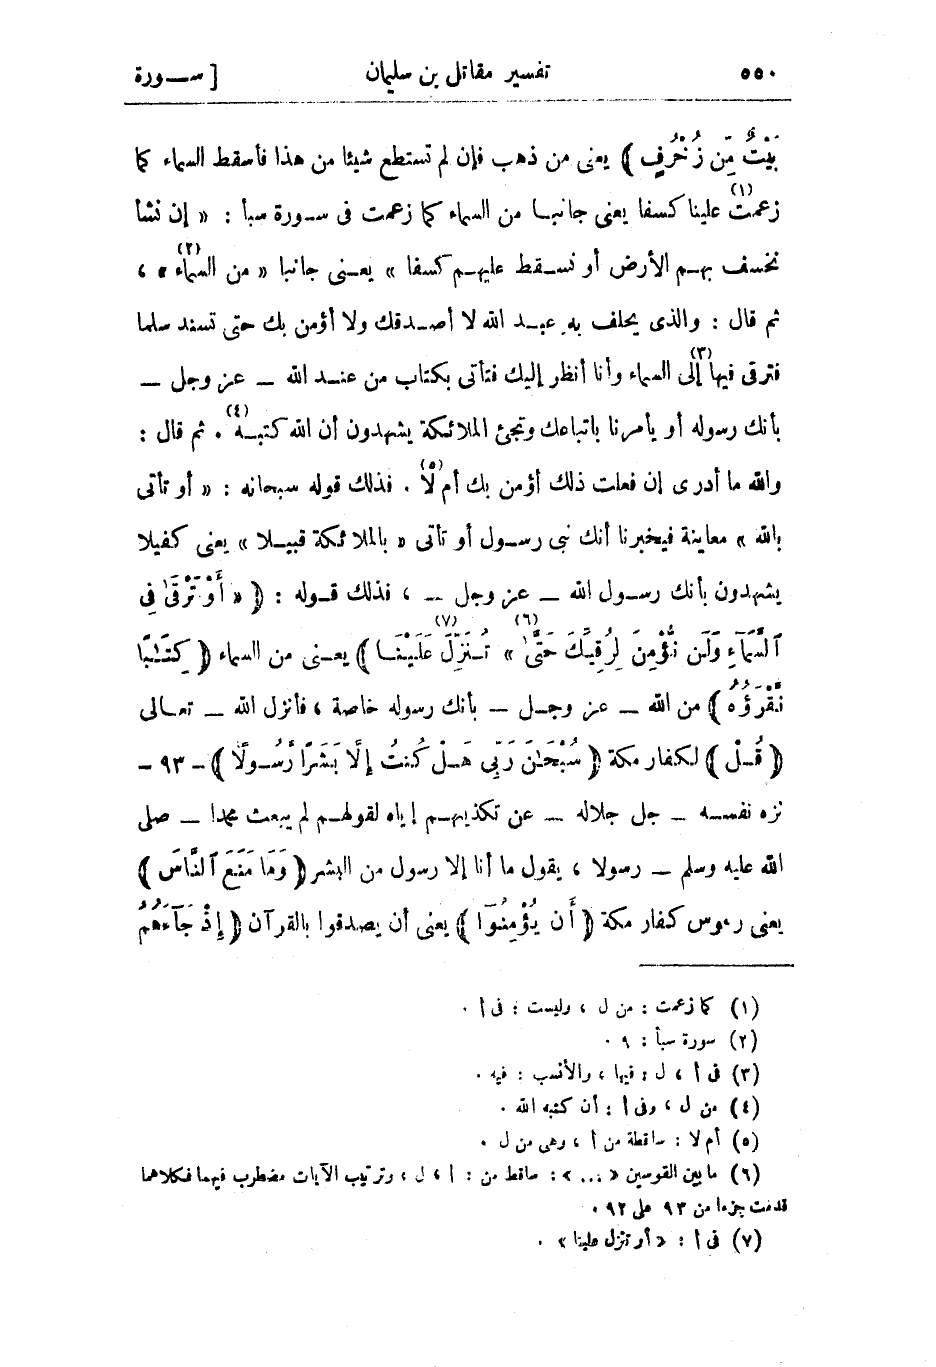 ٥٥٠ تفسير مقاتل بن سليمان [ ســورة
بَيْتٌ مِّن زُخْرُفٍ ) يعنى من ذهب فإن لم تستطع شيئا من هذا فأسقط السماء كما
زعمت(١) علينا كسفا يعنى جانبـا من السماء كما زعمت فى سـورة سبأ : « إن نشأ
نخسف بهـم الأرض أو نسـقط عليهـم كسفا » يعـنى جانبا « من السماء(٢) » ،
ثم قال : والذى يحلف به عبـد الله لا أصـدقك ولا أؤمن بك حتى تسند سلما
فترقى فيها(٣) إلى السماء وأنا أنظر إليك فتأتى بكتاب من عنـد الله — عز وجل —
بأنك رسوله أو يأمرنا باتباعك وتجئ الملائكة يشهدون أن الله كتبـه(٤) . ثم قال :
والله ما أدرى إن فعلت ذلك أؤمن بك أم لا(٥) . فذلك قوله سبحانه : « أو تأتى
بالله » معاينة فيخبرنا أنك نبى رسـول أو تأتى « بالملائكة قبيـلا » يعنى كفيلا
يشهدون بأنك رسـول الله — عز وجل — ، فذلك قـوله : ( « أَوْ تَرْقَىٰ فِى
ٱلسَّمَآءِ وَلَن نُّؤْمِنَ لِرُقِيِّكَ حَتَّىٰ(٦) » تُـنَزِّلَ(٧) عَلَيْنَـا ) يعـنى من السماء ( كِتَـٰبًا
نَّقْرَؤُهُ ) من الله — عز وجـل — بأنك رسوله خاصة ، فأنزل الله — تعـالى
( قُـلْ ) لكفار مكة ( سُبْحَـٰنَ رَبِّى هَـلْ كُنتُ إِلَّا بَشَرًا رَّسُـولًا ) - ٩٣ -
نزه نفســه — جل جلاله — عن تكذيبهـم إياه لقولهـم لم يبعث محمدا — صلى
الله عليه وسلم — رسولا ، يقول ما أنا إلا رسول من البشر ( وَمَا مَنَعَ ٱلنَّاسَ )
يعنى رءوس كفار مكة ( أَن يُؤْمِنُـوٓا ) يعنى أن يصدقوا بالقرآن ( إِذْ جَآءَهُمُ
(١) كما زعمت : من ل ، وليست : فى أ .
(٢) سورة سبأ : ٩ .
(٣) فى أ ، ل : فيها ، والأنسب : فيه .
(٤) من ل ، وفى أ : أن كتبه الله .
(٥) أم لا : ساقطة من أ ، وهى من ل .
(٦) ما بين القوسين « ... » : ساقط من : أ ، ل ، وترتيب الآيات مضطرب فيهما فكلاهما
قدمت جزءا من ٩٣ على ٩٢ .
(٧) فى أ : « أو تنزل علينا » .